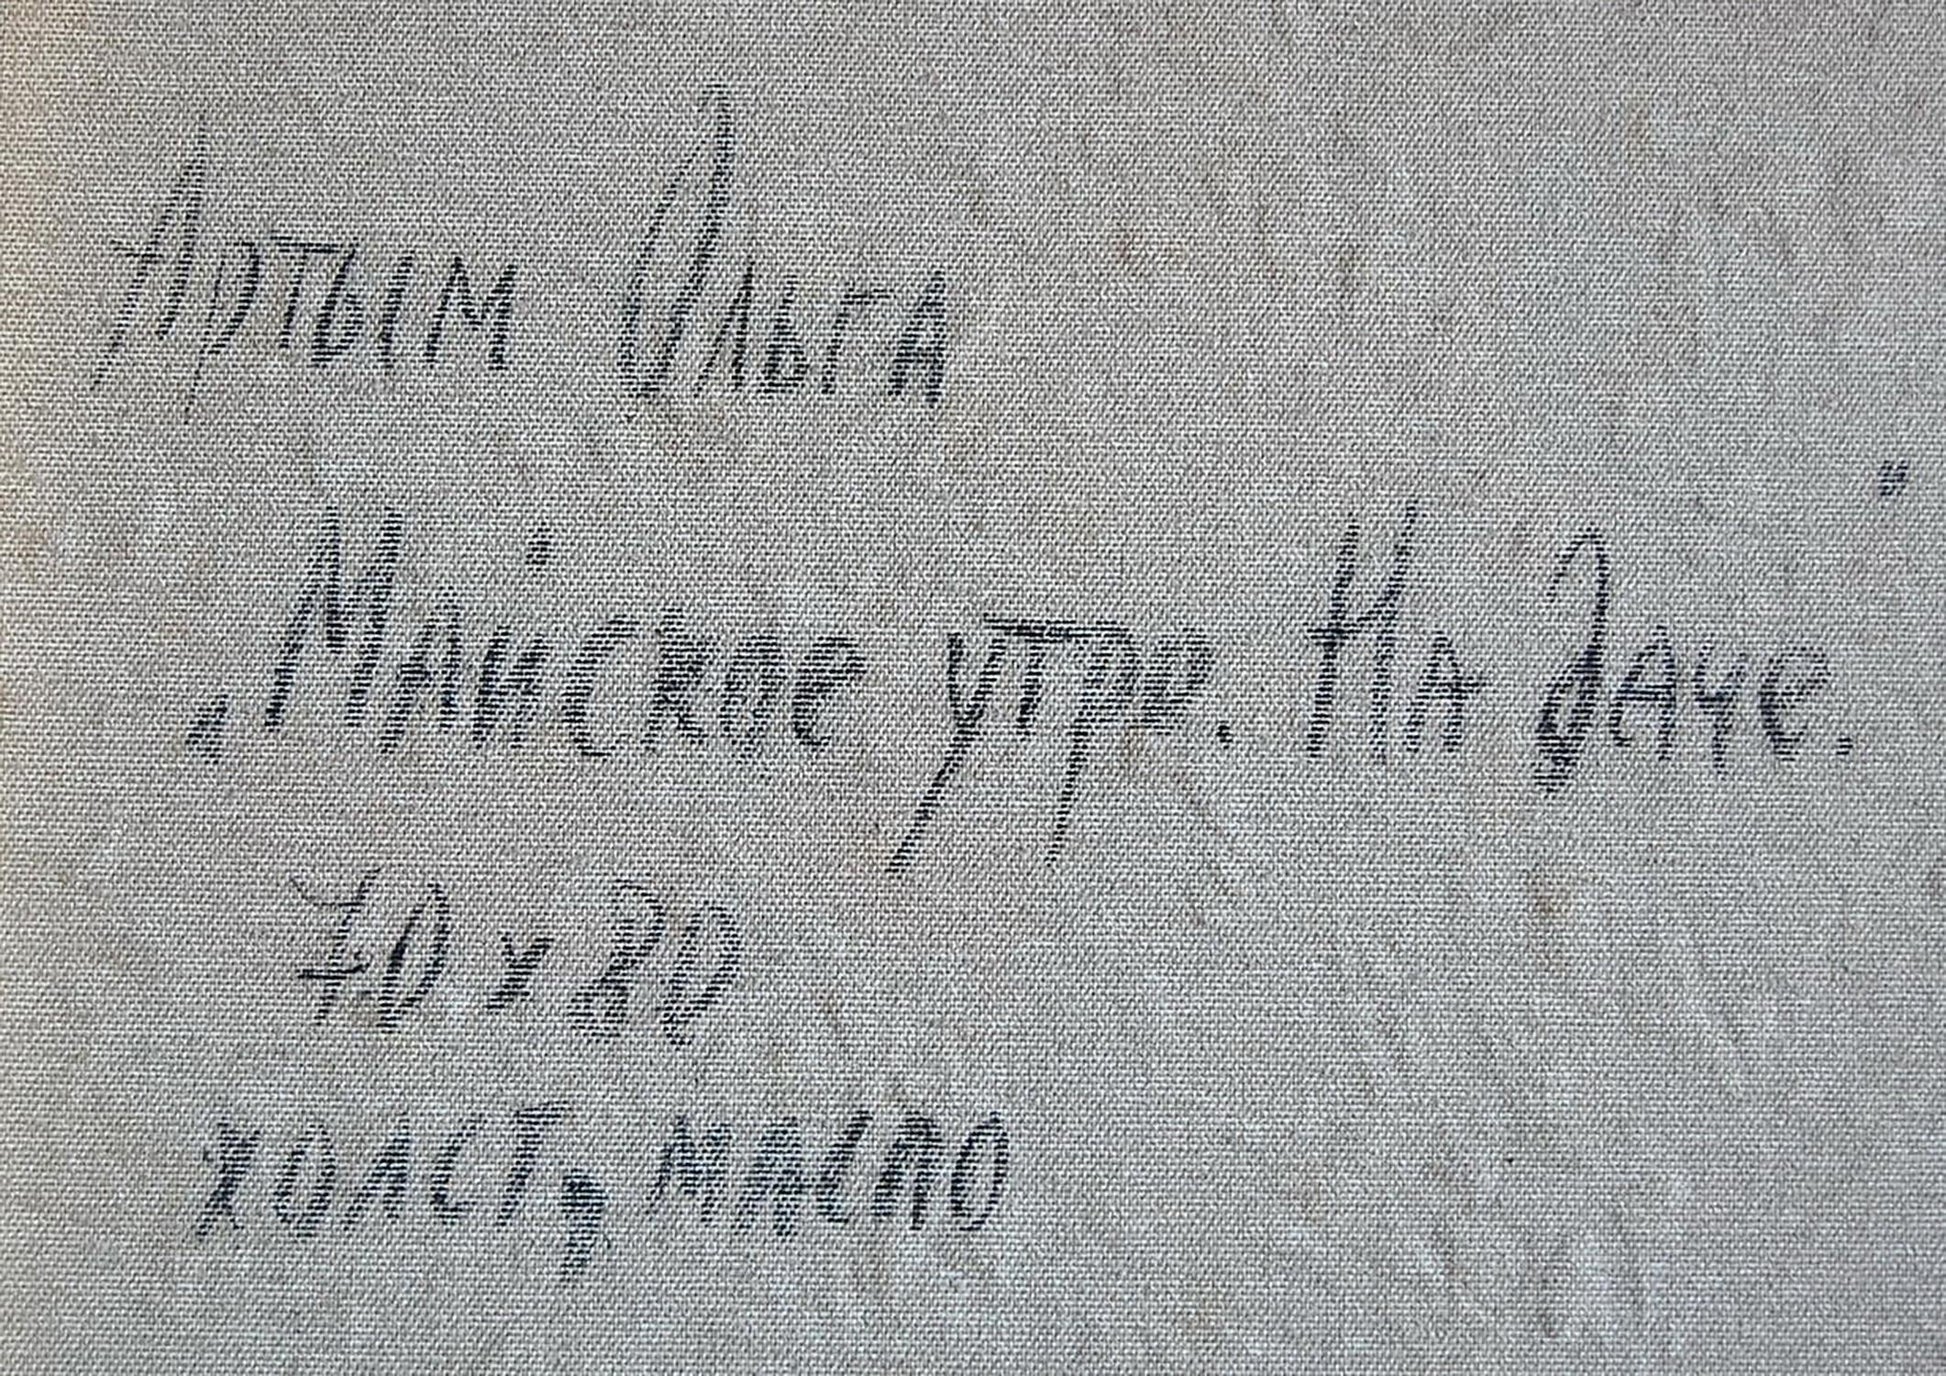 Артым Ольга
„Майское утро. На даче.“
70 x 80
холст, масло